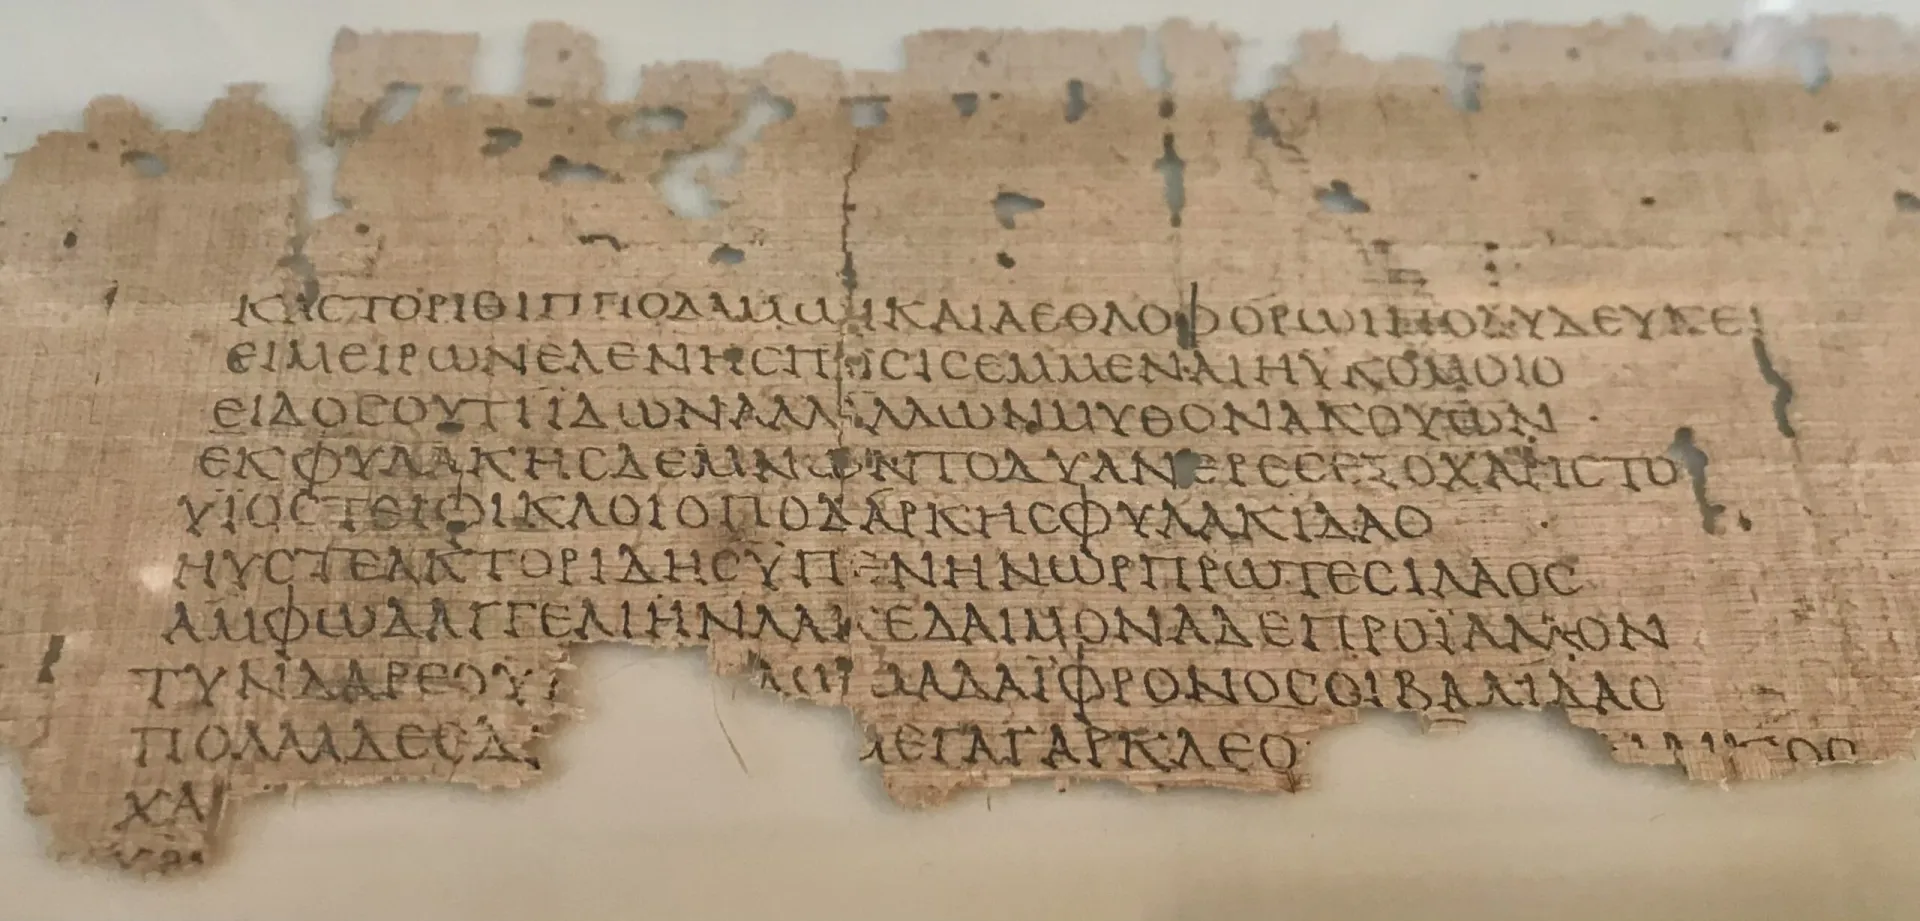 ΚΑCΤΟΡΙΘΙΠΠΟΔΑΜΩΙΚΑΙΑΕΘΛΟΦΟΡΩΙΠΟΛΥΔΕΥΚΕΙ
ΕΙΜΕΙΡΩΝΕΛΕΝΗCΠΟCΙCΕΜΜΕΝΑΙΗΥΚΟΜΟΙΟ
ΕΙΔΟCΟΥΤΙΪΔΩΝΑΛΛΑΛΛΩΝΜΥΘΟΝΑΚΟΥΩΝ
ΕΚΦΥΛΑΚΗCΔΕΜΝΩΝΤΟΔΥΑΝΕΡΕCΕΞΟΧΑΡΙCΤΟ
ΥΪΟCΤΕΙΦΙΚΛΟΙΟΠΟΔΑΡΚΗCΦΥΛΑΚΙΔΑΟ
ΗΥCΤΕΑΚΤΟΡΙΔΗCΥΠΕΝΗΝΩΡΠΡΩΤΕCΙΛΑΟC
ΑΜΦΩΔΑΓΓΕΛΙΗΝΛΑΚΕΔΑΙΜΟΝΑΔΕΠΡΟΪΑΛΛΟΝ
ΤΥΝΔΑΡΕΟΥ ΔΩΜΑΔΑΪΦΡΟΝΟCΟΙΒΑΛΙΔΑΟ
ΠΟΛΛΑΔΕΕΔ ΜΕΓΑΓΑΡΚΛΕΟ
ΧΑΛ